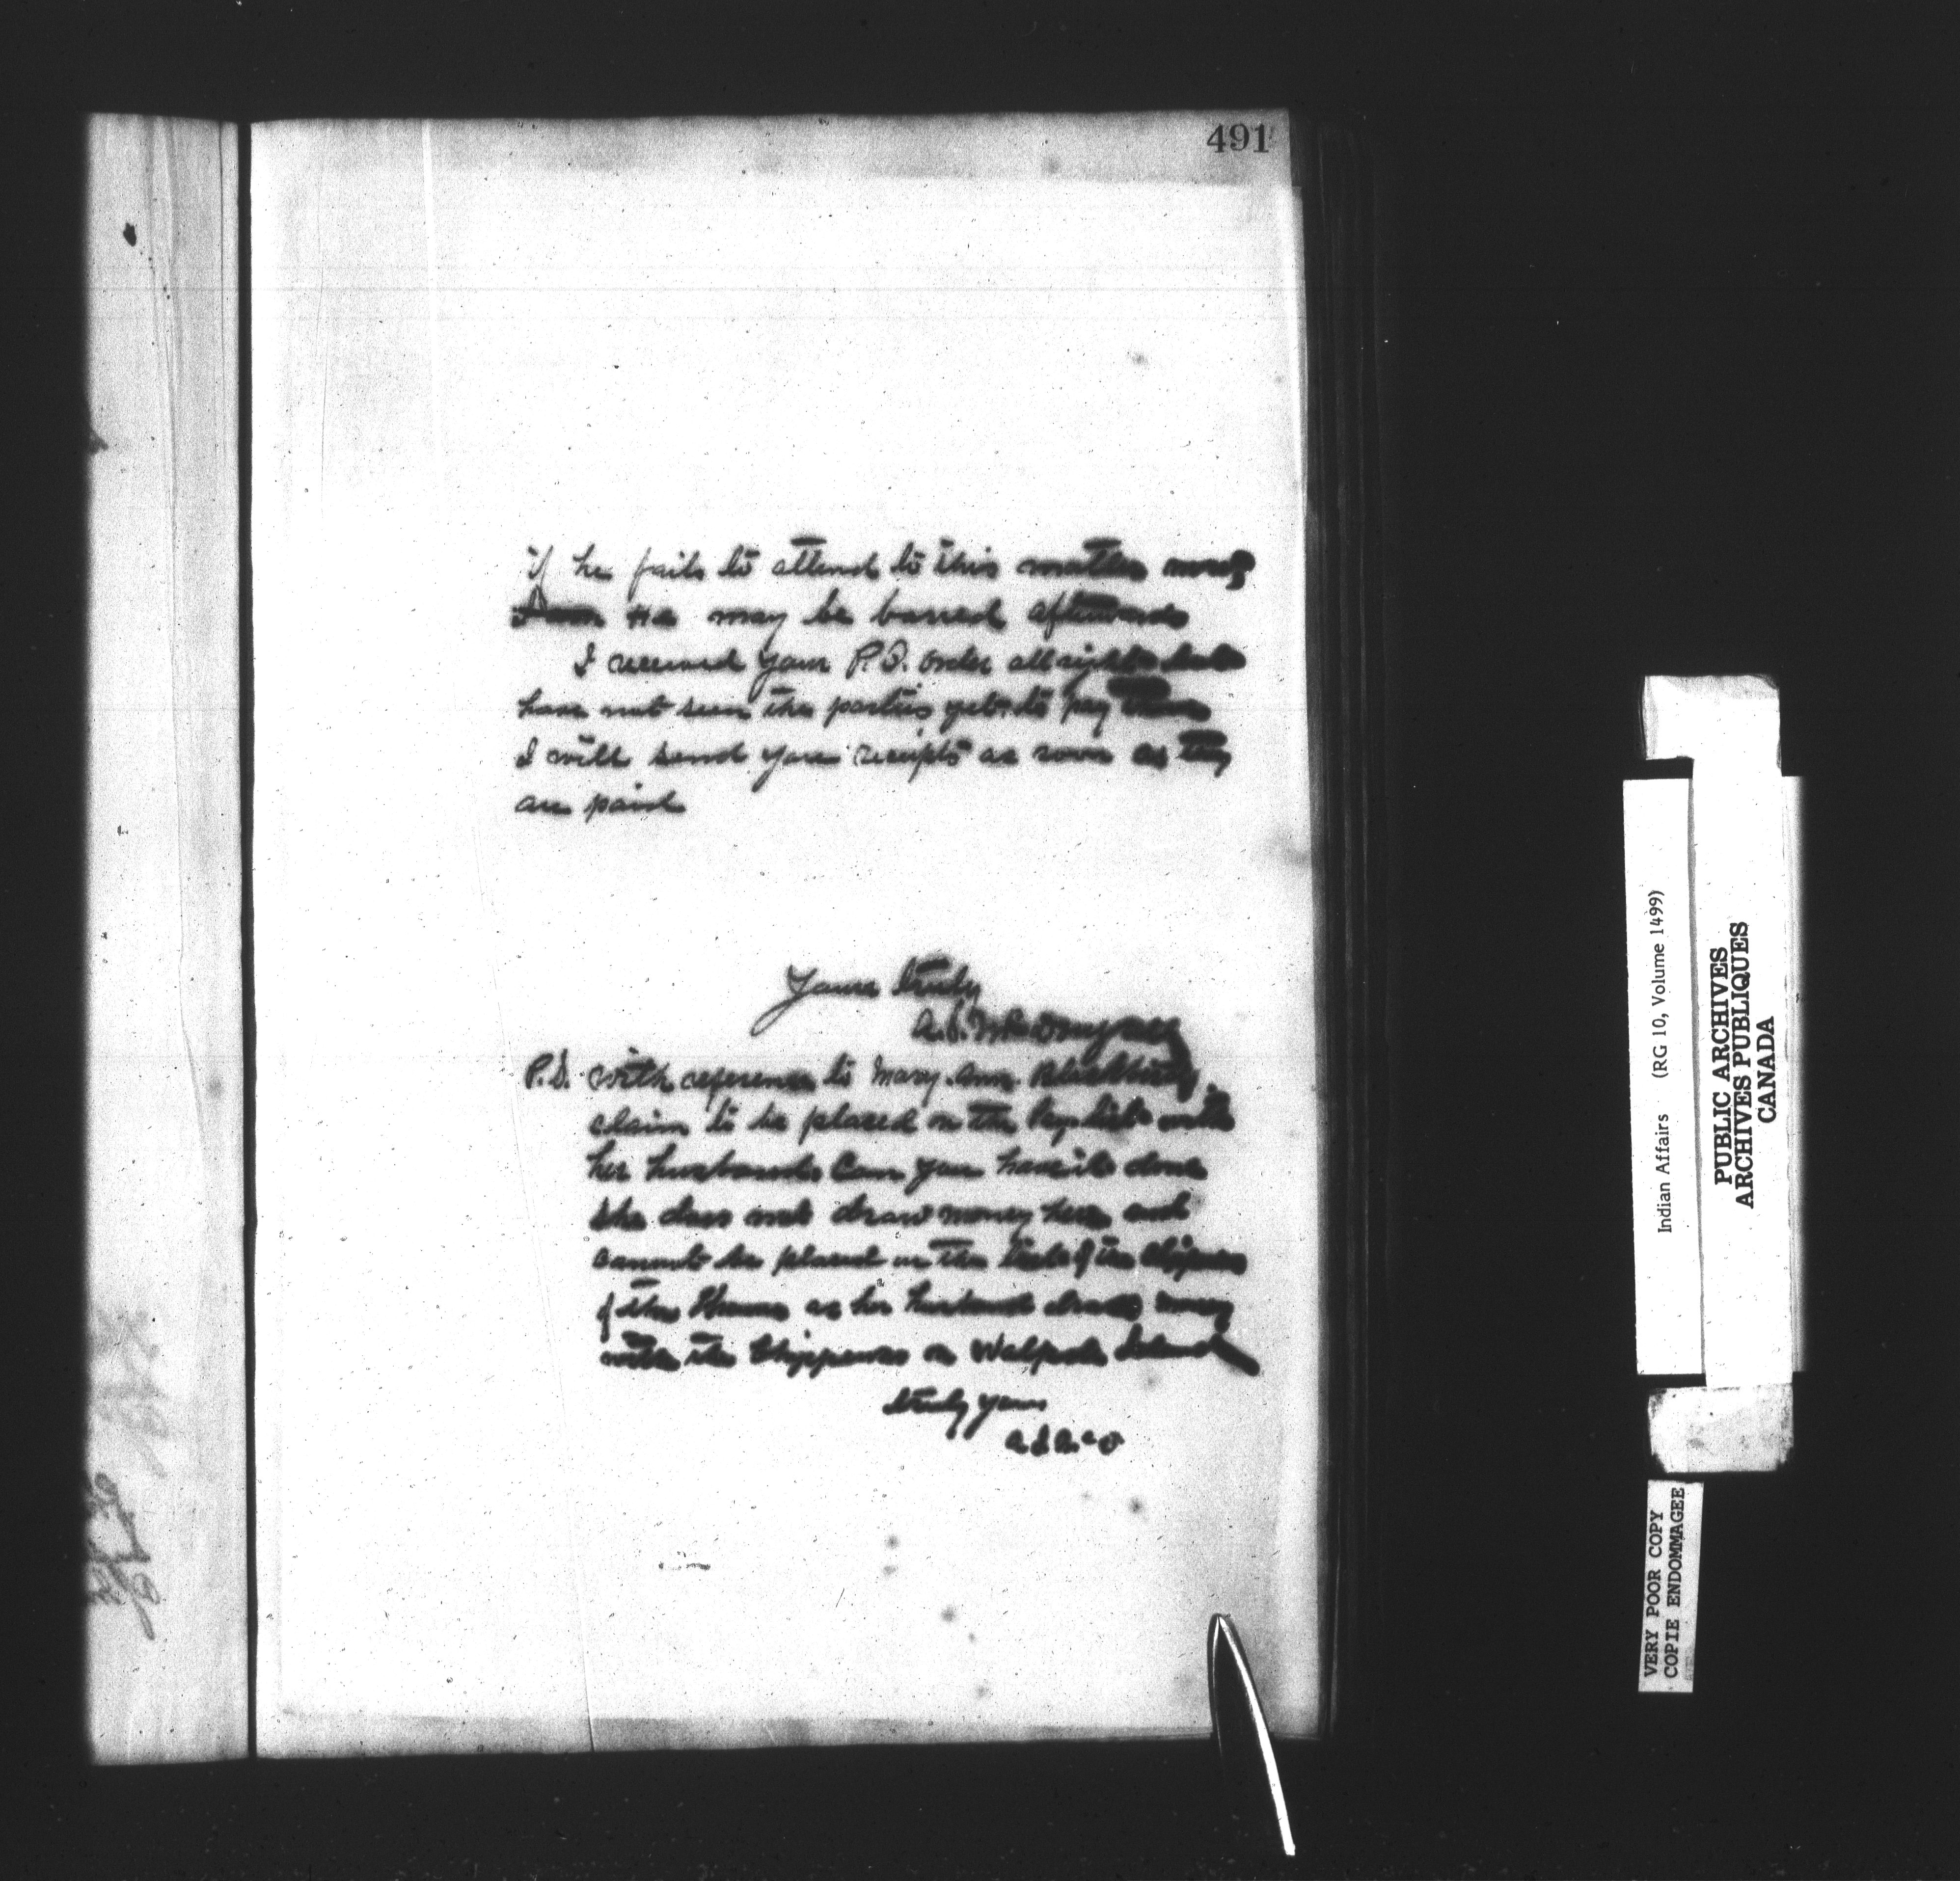 491
if he fails to attend to this matter now
He may be barred afterwards
I received your P.O. order all right but
have not seen the parties yet to pay them
I will send you receipts as soon as they
are paid
Yours truly
A. S. McDougall
P.S. with reference to Mary Ann
claim to be placed on the Pay list with
her husbands Can you have it done
She does not draw money here and
cannot be placed on the list of the Chippewas
of the Thames as her husband draws money
with the Chippewas on Walpole Island
truly yours
Indian Affairs (RG 10, Volume 1499)
PUBLIC ARCHIVES
ARCHIVES PUBLIQUES
CANADA
VERY POOR COPY
COPIE ENDOMMAGEE